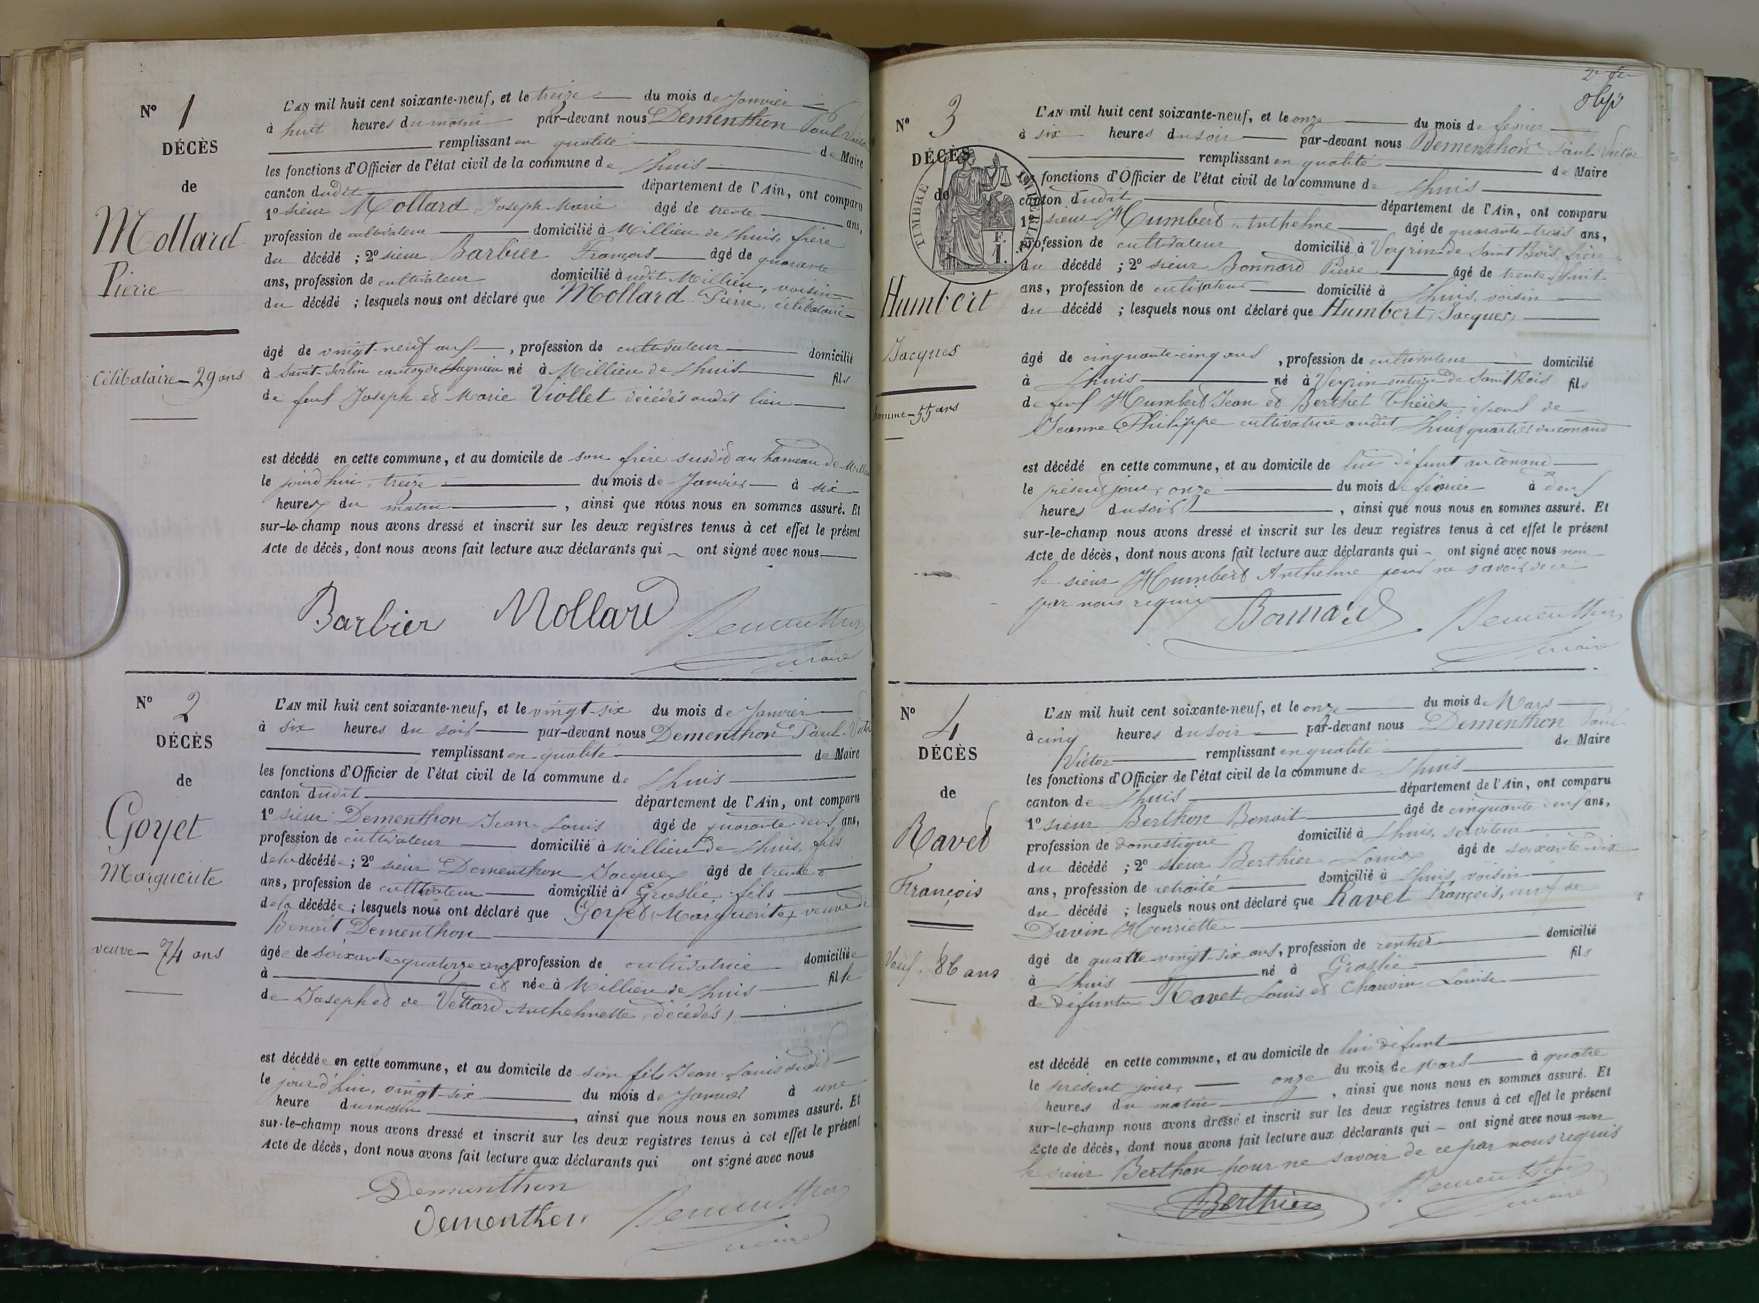 N° 1
DÉCÈS
de
Mollard
Pierre
Célibataire - 29 ans
L'AN mil huit cent soixante-neuf, et le treize du mois de Janvier à
huit heures du matin par-devant nous Dementhon Paul Victor
remplissant en qualité de Maire
les fonctions d'Officier de l'état civil de la commune de Lhuis
canton dudit département de l'Ain, ont comparu
1° sieur Mollard Joseph Marie âgé de trente ans,
profession de cultivateur domicilié à Millieu de Lhuis, frère
du décédé ; 2° sieur Barbier François âgé de quarante
ans, profession de cultivateur domicilié à udit Millieu, voisin
du décédé ; lesquels nous ont déclaré que Mollard Pierre, célibataire
âgé de vingt-neuf ans, profession de cultivateur domicilié
à Saint-Sorlin canton de Lagnieu né à Millieu de Lhuis fils
de feu Joseph et Marie Viollet décédés audit lieu
est décédé en cette commune, et au domicile de son frère susdit au hameau de Millieu
le jourd'hui, treize du mois de Janvier à six
heures du matin, ainsi que nous nous en sommes assuré. Et
sur-le-champ nous avons dressé et inscrit sur les deux registres tenus à cet effet le présent
Acte de décès, dont nous avons fait lecture aux déclarants qui ont signé avec nous
Barbier Mollard Dementhon
maire
N° 2
DÉCÈS
de
Goyet
Marguerite
veuve - 74 ans
L'AN mil huit cent soixante-neuf, et le vingt-six du mois de Janvier
à six heures du soir par-devant nous Dementhon Paul Victor
remplissant en qualité de Maire
les fonctions d'Officier de l'état civil de la commune de Lhuis
canton dudit département de l'Ain, ont comparu
1° sieur Dementhon Jean Louis âgé de quarante deux ans,
profession de cultivateur domicilié à Millieu de Lhuis, fils
de la décédée ; 2° sieur Dementhon Jacques âgé de trente
ans, profession de cultivateur domicilié à Groslée, fils
de la décédée ; lesquels nous ont déclaré que Goyet Marguerite, veuve de
Benoît Dementhon
âgée de soixante quatorze ans, profession de cultivatrice domiciliée
à et née à Millieu de Lhuis fille
de Joseph et de Vettard Anthelmette, décédés,
est décédée en cette commune, et au domicile de son fils Jean Louis susdit
le jourd'hui, vingt-six du mois de Janvier à une
heure du matin, ainsi que nous nous en sommes assuré. Et
sur-le-champ nous avons dressé et inscrit sur les deux registres tenus à cet effet le présent
Acte de décès, dont nous avons fait lecture aux déclarants qui ont signé avec nous
Dementhon
Dementhon Dementhon
maire
N° 3
DÉCÈS
de
TIMBRE IMPÉRIAL
F.
1.
Humbert
Jacques
homme - 55 ans
L'AN mil huit cent soixante-neuf, et le onze du mois de février
à six heures du soir par-devant nous Dementhon Paul Victor
remplissant en qualité de Maire
les fonctions d'Officier de l'état civil de la commune de Lhuis
canton dudit département de l'Ain, ont comparu
1° sieur Humbert Anthelme âgé de quarante-trois ans,
profession de cultivateur domicilié à Veyrin de Saint Bois, frère
du décédé ; 2° sieur Bonnard Pierre âgé de trente-huit
ans, profession de cultivateur domicilié à Lhuis, voisin
du décédé ; lesquels nous ont déclaré que Humbert, Jacques,
âgé de cinquante-cinq ans, profession de cultivateur domicilié
à Lhuis né à Veyrin de Saint Bois fils
de feu Humbert Jean et Berthet Thérèse, époux de
Jeanne Philippe cultivatrice audit Lhuis,
est décédé en cette commune, et au domicile de lui défunt
le présent jour, onze du mois de février à deux
heures du soir, ainsi que nous nous en sommes assuré. Et
sur-le-champ nous avons dressé et inscrit sur les deux registres tenus à cet effet le présent
Acte de décès, dont nous avons fait lecture aux déclarants qui ont signé avec nous non
le sieur Humbert Anthelme pour ne savoir de ce
par nous requis
Bonnard Dementhon
maire
N° 4
DÉCÈS
de
Ravet
François
Veuf - 86 ans
L'AN mil huit cent soixante-neuf, et le onze du mois de Mars
à cinq heures du soir par-devant nous Dementhon Paul
Victor remplissant en qualité de Maire
les fonctions d'Officier de l'état civil de la commune de Lhuis
canton de Lhuis département de l'Ain, ont comparu
1° sieur Berthon Benoit âgé de cinquante deux ans,
profession de domestique domicilié à Lhuis, serviteur
du décédé ; 2° sieur Berthier Louis âgé de soixante dix
ans, profession de retraité domicilié à Lhuis, voisin
du décédé ; lesquels nous ont déclaré que Ravet François, veuf de
Davin Henriette
âgé de quatre-vingt-six ans, profession de rentier domicilié
à Lhuis né à Groslée fils
de défunts Ravet Louis et Chauvin Louise
est décédé en cette commune, et au domicile de lui défunt
le présent jour, onze du mois de Mars à quatre
heures du matin, ainsi que nous nous en sommes assuré. Et
sur-le-champ nous avons dressé et inscrit sur les deux registres tenus à cet effet le présent
Acte de décès, dont nous avons fait lecture aux déclarants qui ont signé avec nous non
le sieur Berthon pour ne savoir de ce par nous requis
Berthier Dementhon
maire